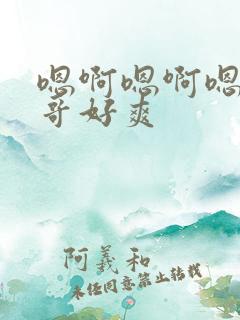 嗯啊嗯啊嗯
哥好爽
阿義和
未经同意禁止转载